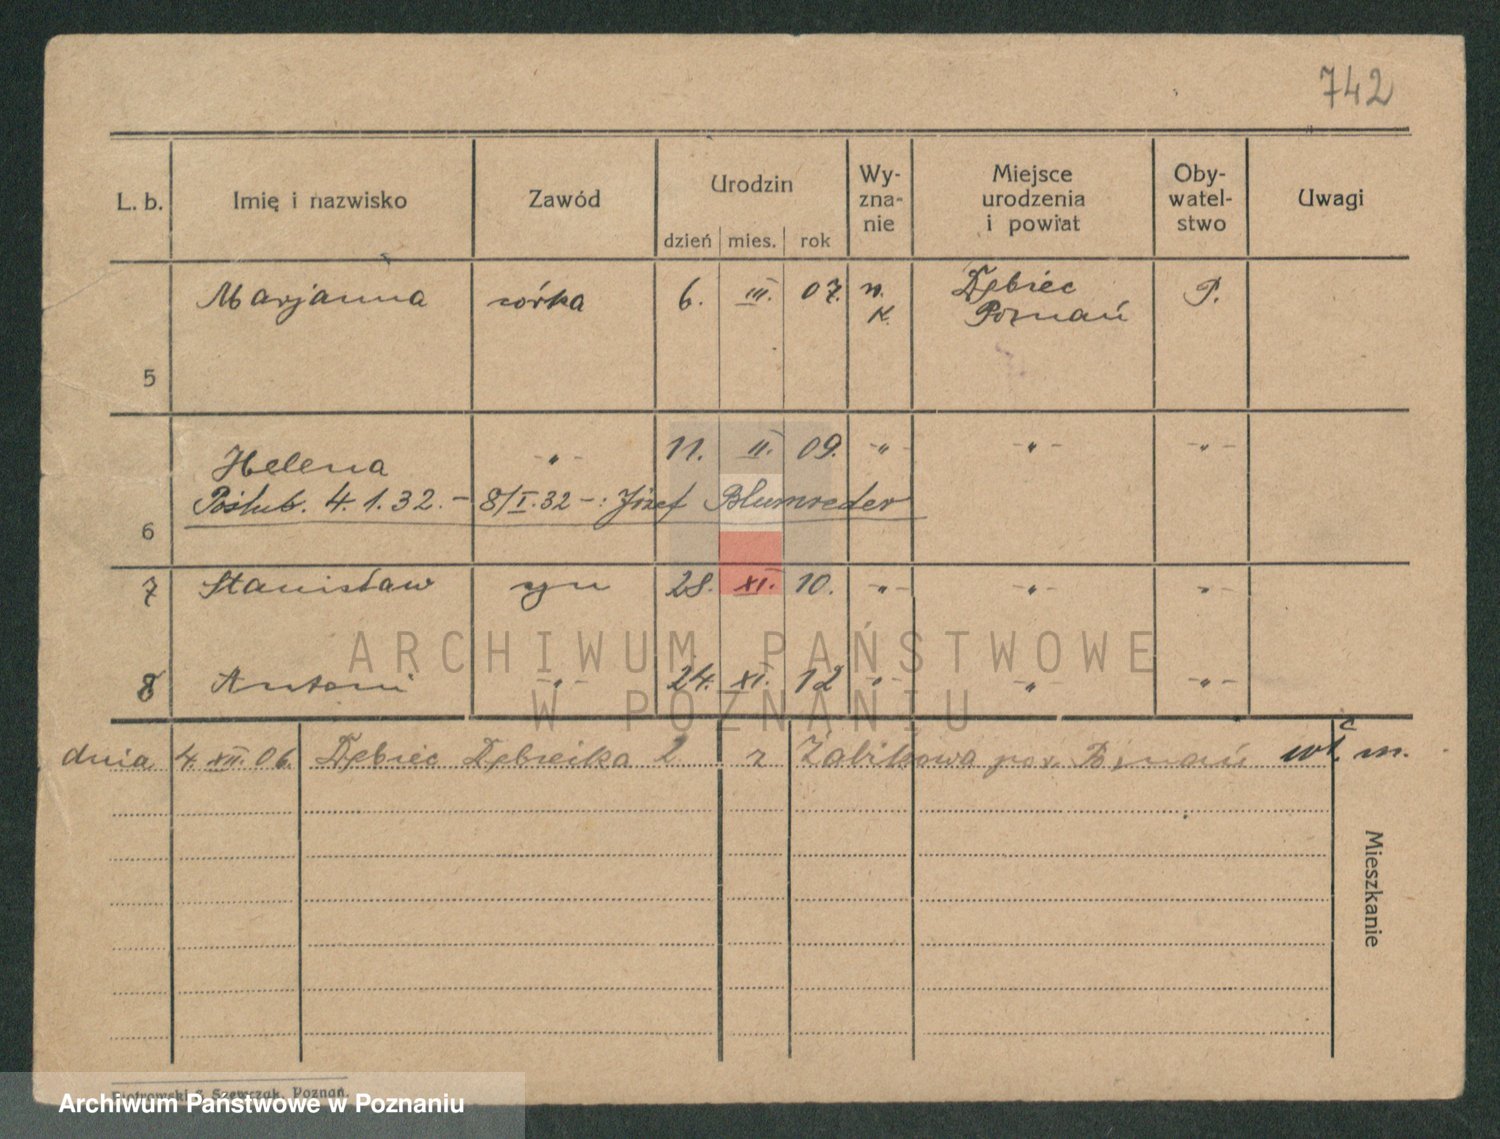 742
L. b. Imię i nazwisko Zawód Urodzin Wy-zna-nie Miejsce urodzenia i powiat Oby-watel-stwo Uwagi
dzień mies. rok
5 Marjanna córka 6. III. 07. r. k. Dębiec Poznań P.
6 Helena -„- 11. II. 09. -„- -„- -„-
Poślub. 4.1.32. – 8/I.32 –: Józef Blumreder
7 Stanisław syn 28. XI. 10. -„- -„- -„-
8 Antoni -„- 24. XI. 12 -„- -„- -„-
dnia 4. XII. 06. Dębiec Dębiecka 2 z Żabikowa pow. Poznań m.
Mieszkanie
Piotrowski & Szewczak, Poznań.
ARCHIWUM PAŃSTWOWE
W POZNANIU
Archiwum Państwowe w Poznaniu